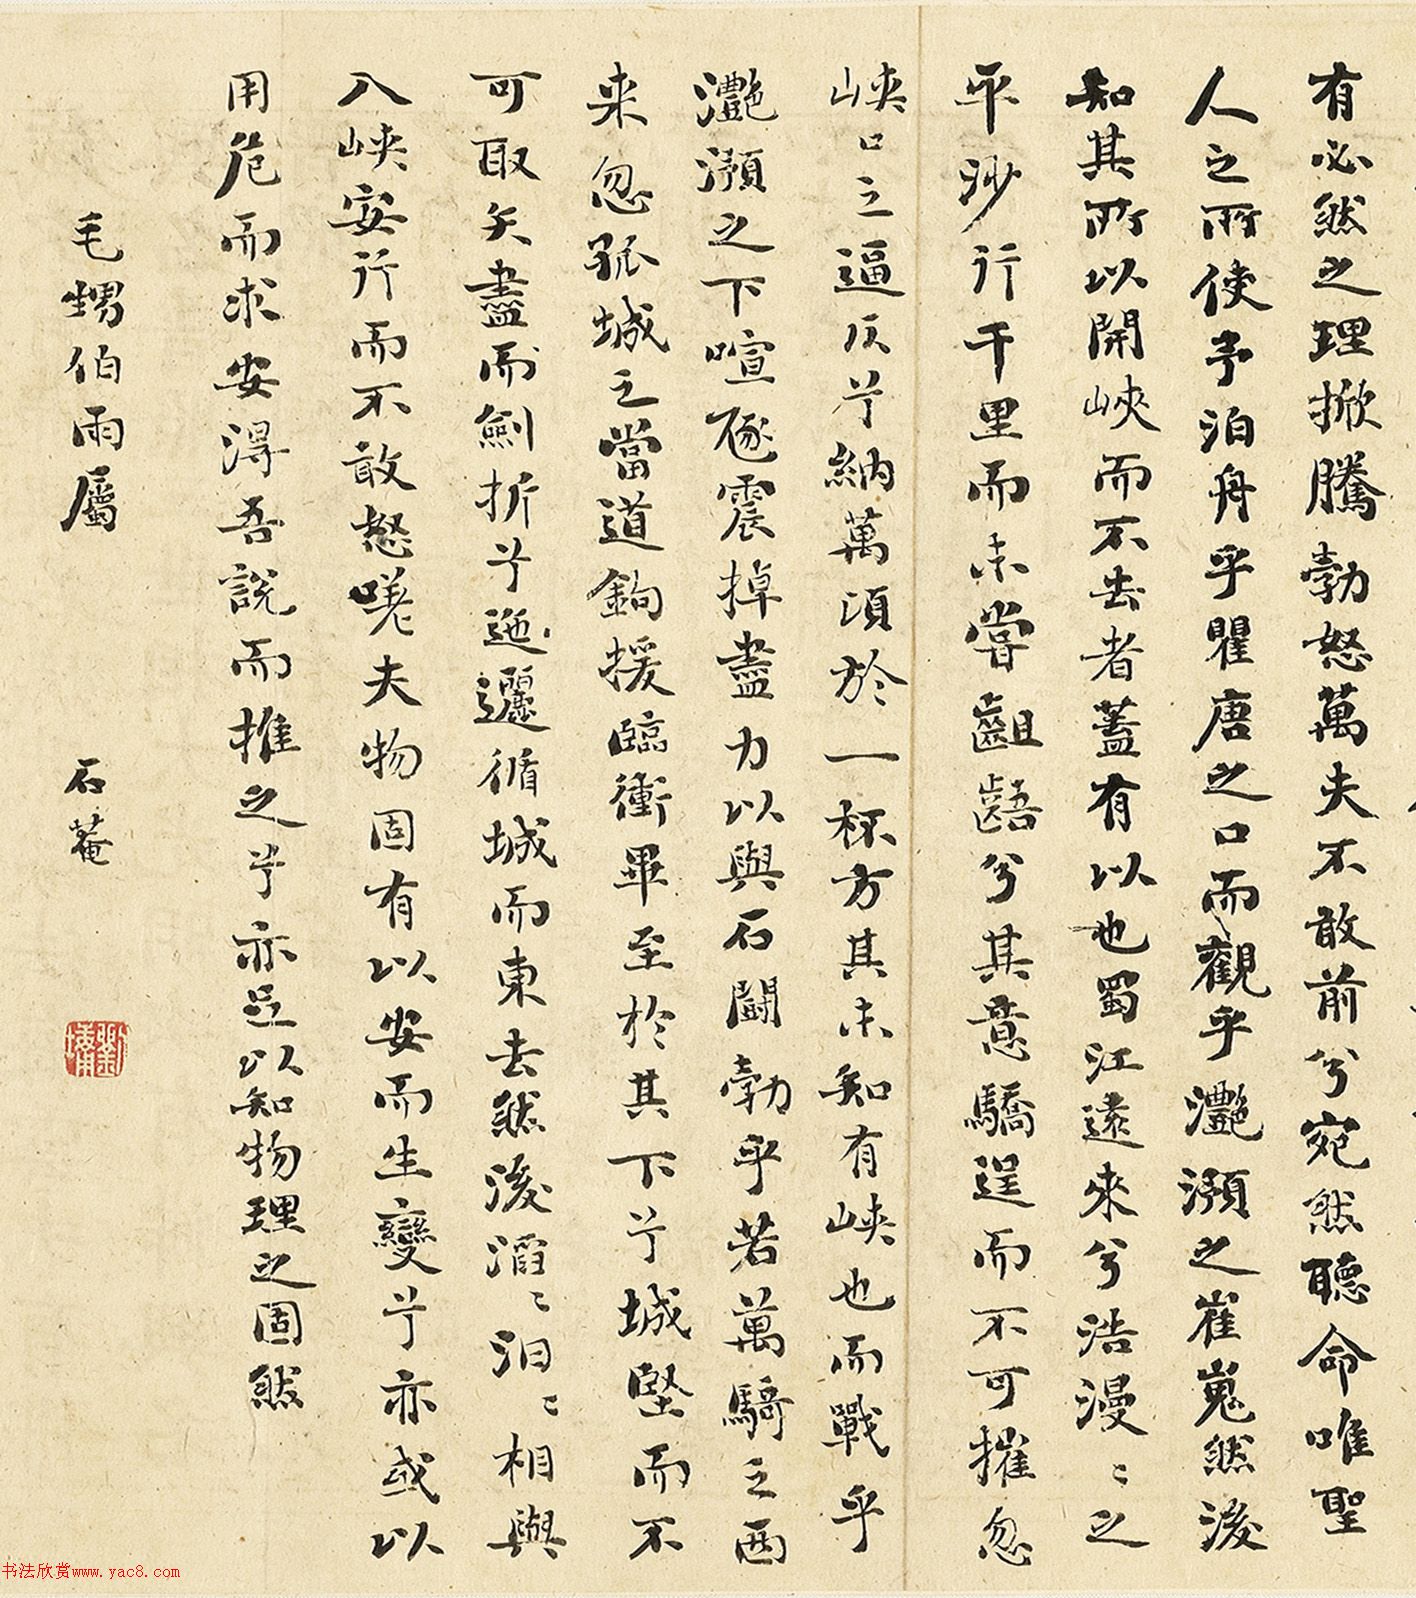 有必然之理掀騰勃怒萬夫不敢前兮宛然聽命唯聖
人之所使予泊舟乎瞿唐之口而觀乎灔澦之崔嵬然後
知其所以開峽而不去者蓋有以也蜀江遠來兮浩漫〻之
平沙行千里而未嘗齟齬兮其意驕逞而不可摧忽
峽口之逼仄兮納萬頃於一杯方其未知有峽也而戰乎
灔澦之下喧豗震掉盡力以與石鬭勃乎若萬騎之西
来忽孤城之當道鉤援臨衝畢至於其下兮城堅而不
可取矢盡而劍折兮迤邐循城而東去然後滔〻汩〻相與
入峽安行而不敢怒嗟夫物固有以安而生變兮亦或以
用危而求安得吾說而推之兮亦足以知物理之固然
毛甥伯雨屬
石菴
劉墉
书法欣赏www.yac8.com